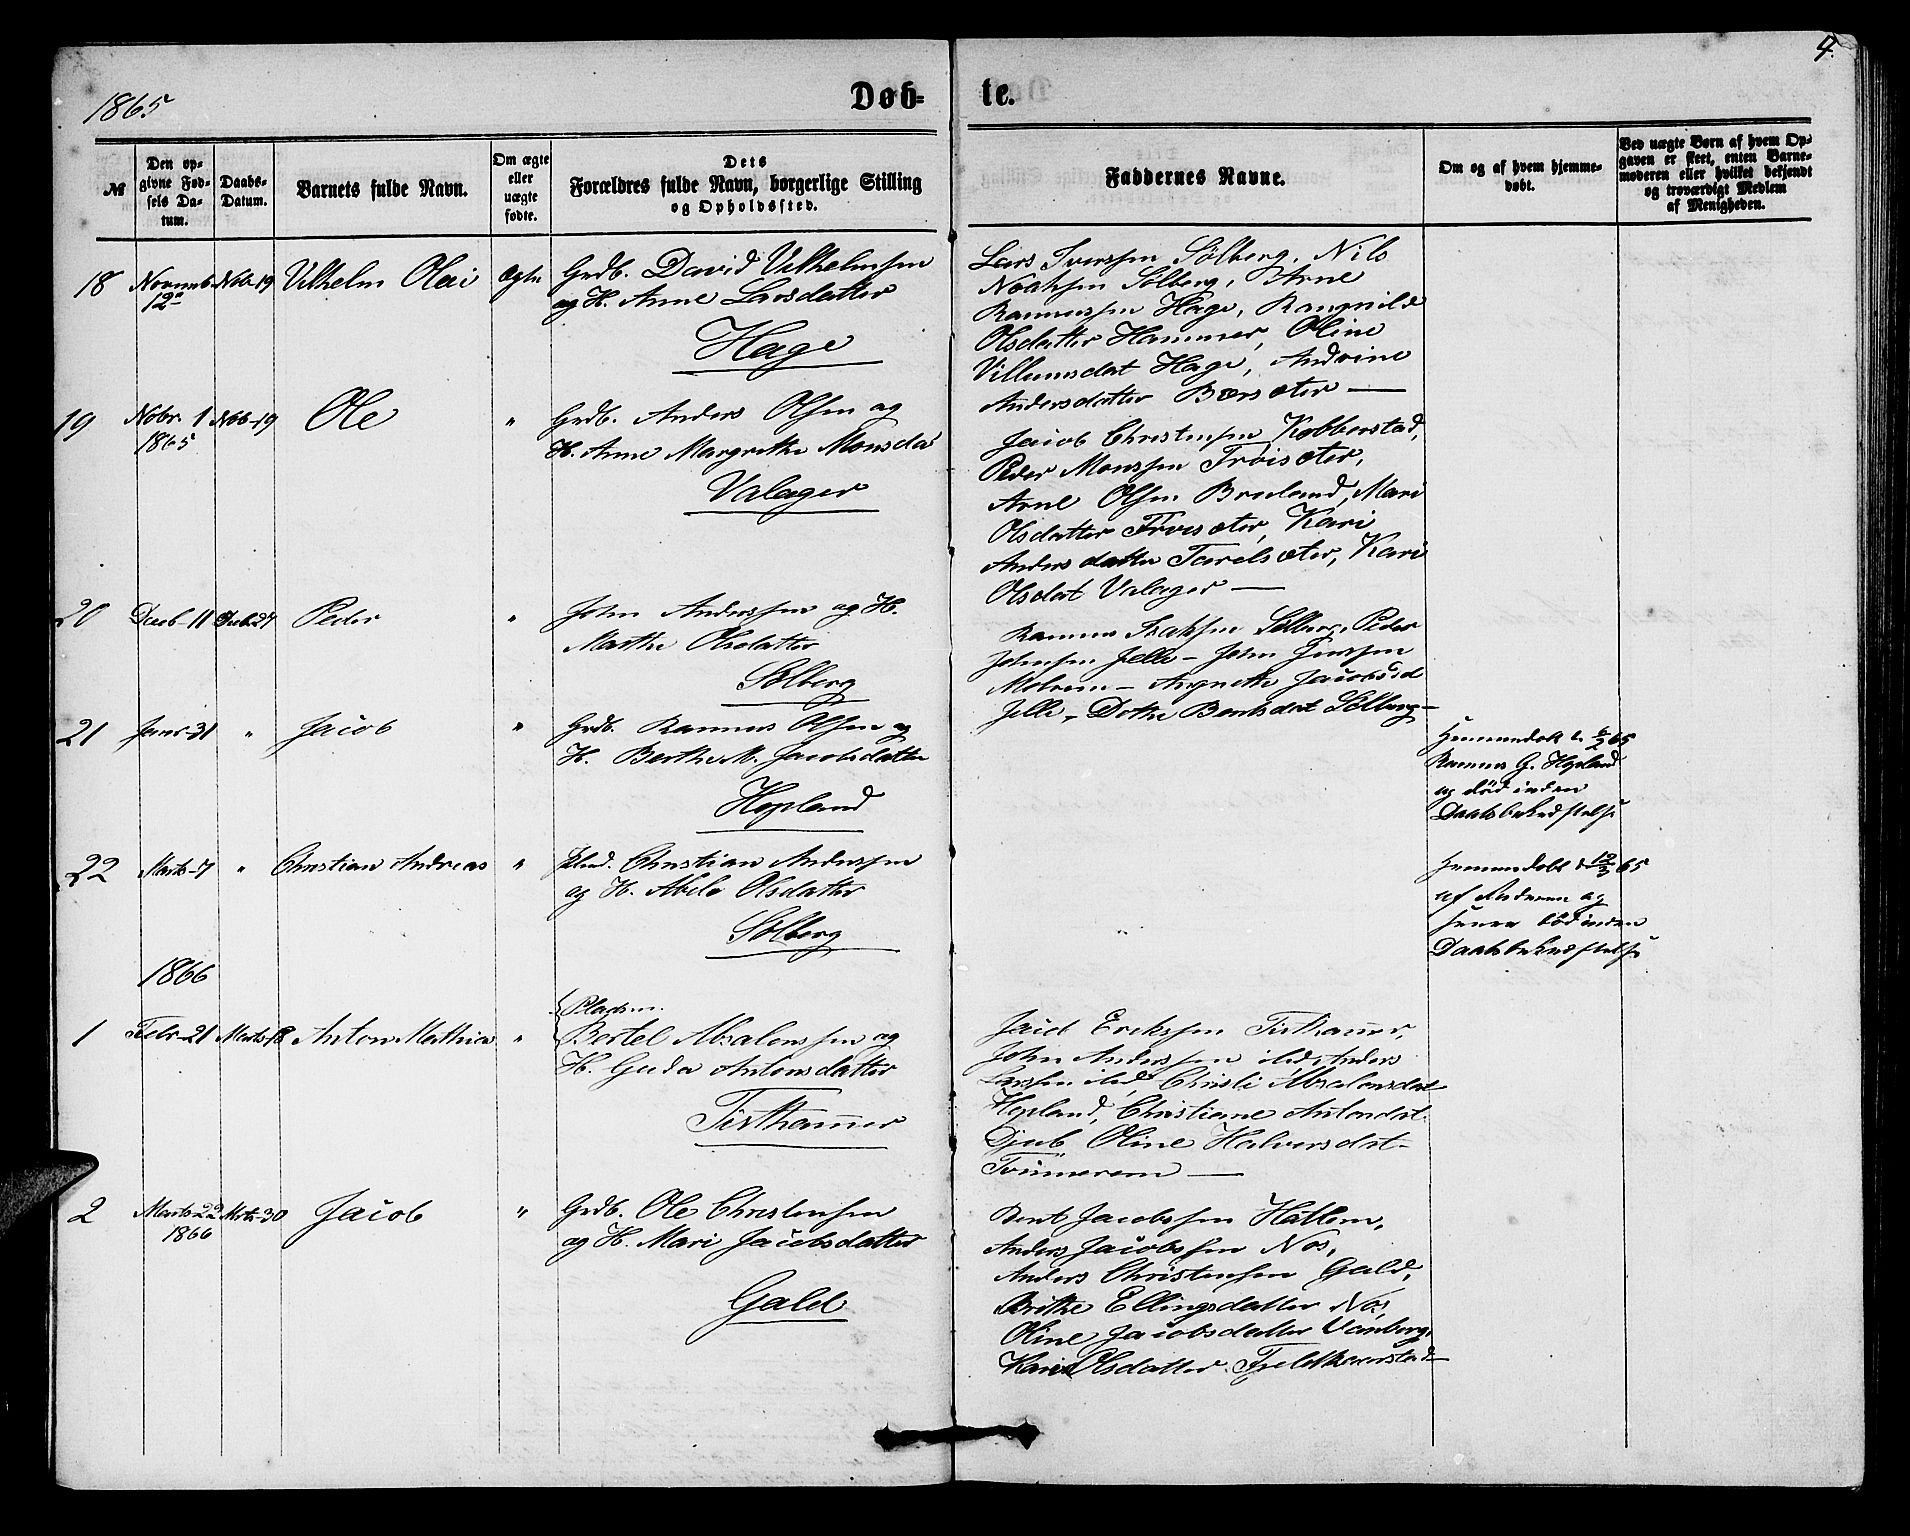 4.
1865
Døb- te.
№
Den opgivne Fødsels Datum.
Daabs-Datum.
Barnets fulde Navn.
Om ægte eller uægte fødte.
Dets Forældres fulde Navn, borgerlige Stilling og Opholdssted.
Faddernes Navne.
Om og af hvem hjemmedøbt.
Ved uægte Børn af hvem Opgaven er skeet, enten Barnemoderen eller hvilket bekjendt og troværdigt Medlem af Menigheden.
18 Novemb. 12te Nob-19 Vilhelm Olai Ægte Grdb. David Vilhelmsen
og H. Anne Larsdatter
Hage
Lars Iverssen Sølberg, Nils
Noaksen Sølberg, Arne
Rasmussen Hage, Rangnilde
Olsdatter Hammer, Oline
Villumsdat Hage, Andrine
Andersdatter Børsæter —
19 Nobr. 1 1865 Nob-19 Ole " Grdb. Anders Olsen og
H. Anne Margrethe Monsda
Valager
Jacob Christensen Kobberstad,
Peder Monssen Frøisæter,
Arne Olsen Bruland, Mari
Olsdatter Frøisæter, Kari
Andersdatter Tarelsæter, Kari
Olsdat Valager —
20 11 27 Peder " John Anderssen og H.
Marthe Olsdatter
Sølberg
Rasmus Isaksen Sølberg, Peder
Johnsen Jelle – John Jenssen
Melvem – Angnethe Jacobsd
Jelle, Dothe Bentsdat Sølberg –
21 Janr-31 " Jacob " Grdb. Rasmus Olsen og
H. Berthe M. Jacobsdatter
Hopland
Hjemmedøbt d. 6/2 65
Rasmus G. Hopland
og død inden
Daabsbekræftelse
22 Marts-7 " Christian Andreas " Christian Anderssen
og H. Abelo Olsdatter
Sølberg
Hjemmedøbt d 12/3 65
af Faderen og
død inden
Daabsbekræftelse
1866
1 Febr-21 Marts-18 Anton Mathias " Pladsm.
Bertel Absalonssen og
H. Guda Antonsdatter
Tisthamer
Jacob Erikssen Tisthamer,
John Anderssen ibd, Anders
Larssen ibd, Christi Absalonsdat
Hopland, Christiane Antondat.
Djub Oline Halversdat –
Tvinnerem —
2 Marts-22 1866 Mrts-30 Jacob " Grdb. Ole Christensen
og H. Mari Jacobsdatter
Gald
Bent Jacobssen Hatlem,
Anders Jacobssen Nos,
Anders Christensen Gald,
Brithe Ellingsdatter Nos,
Oline Jacobsdatter Vanberg,
Kari Olsdatter